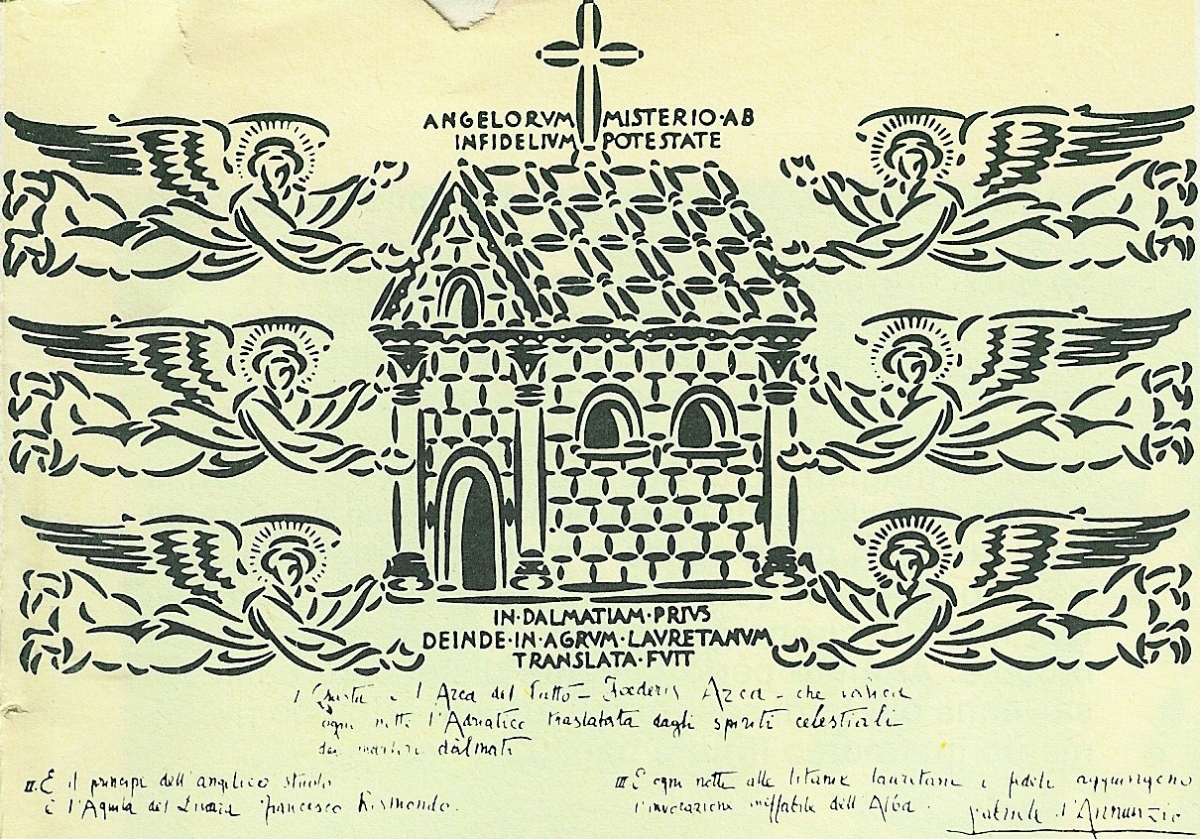 ANGELORVM MISTERIO·AB
INFIDELIVM POTESTATE
IN·DALMATIAM·PRIVS
DEINDE·IN·AGRVM·LAVRETANVM
TRANSLATA·FVIT
I Questa è l'Arca del Patto – Foederis Arca – che varca
ogni notte l'Adriatico traslatata dagli spiriti celestiali
dei martiri dàlmati
II. E il principe dell'angelico stuolo
è l'Aquila del Dinara Francesco Rismondo.
III E ogni notte alle litanie lauretane i fedeli aggiungono
l'invocazione ineffabile dell'Alba.
Gabriele d'Annunzio